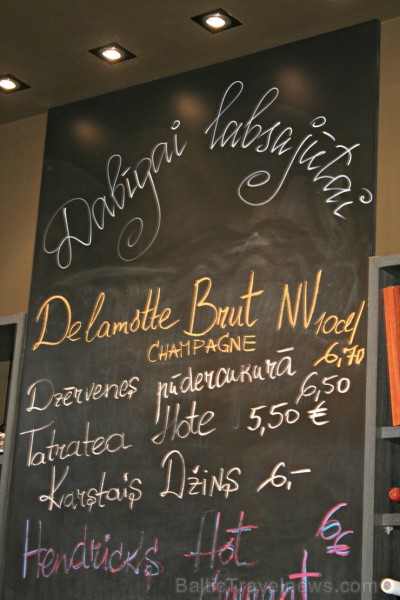 Dabīgai labsajūtai
Delamotte Brut NV 10cl/
CHAMPAGNE 6,70
Dzērvenes pūdercukurā 6,50
Tatratea Hote 5,50 €
Karstais Džins 6,-
Hendrick's Hot 6€
BalticTravelnews.com